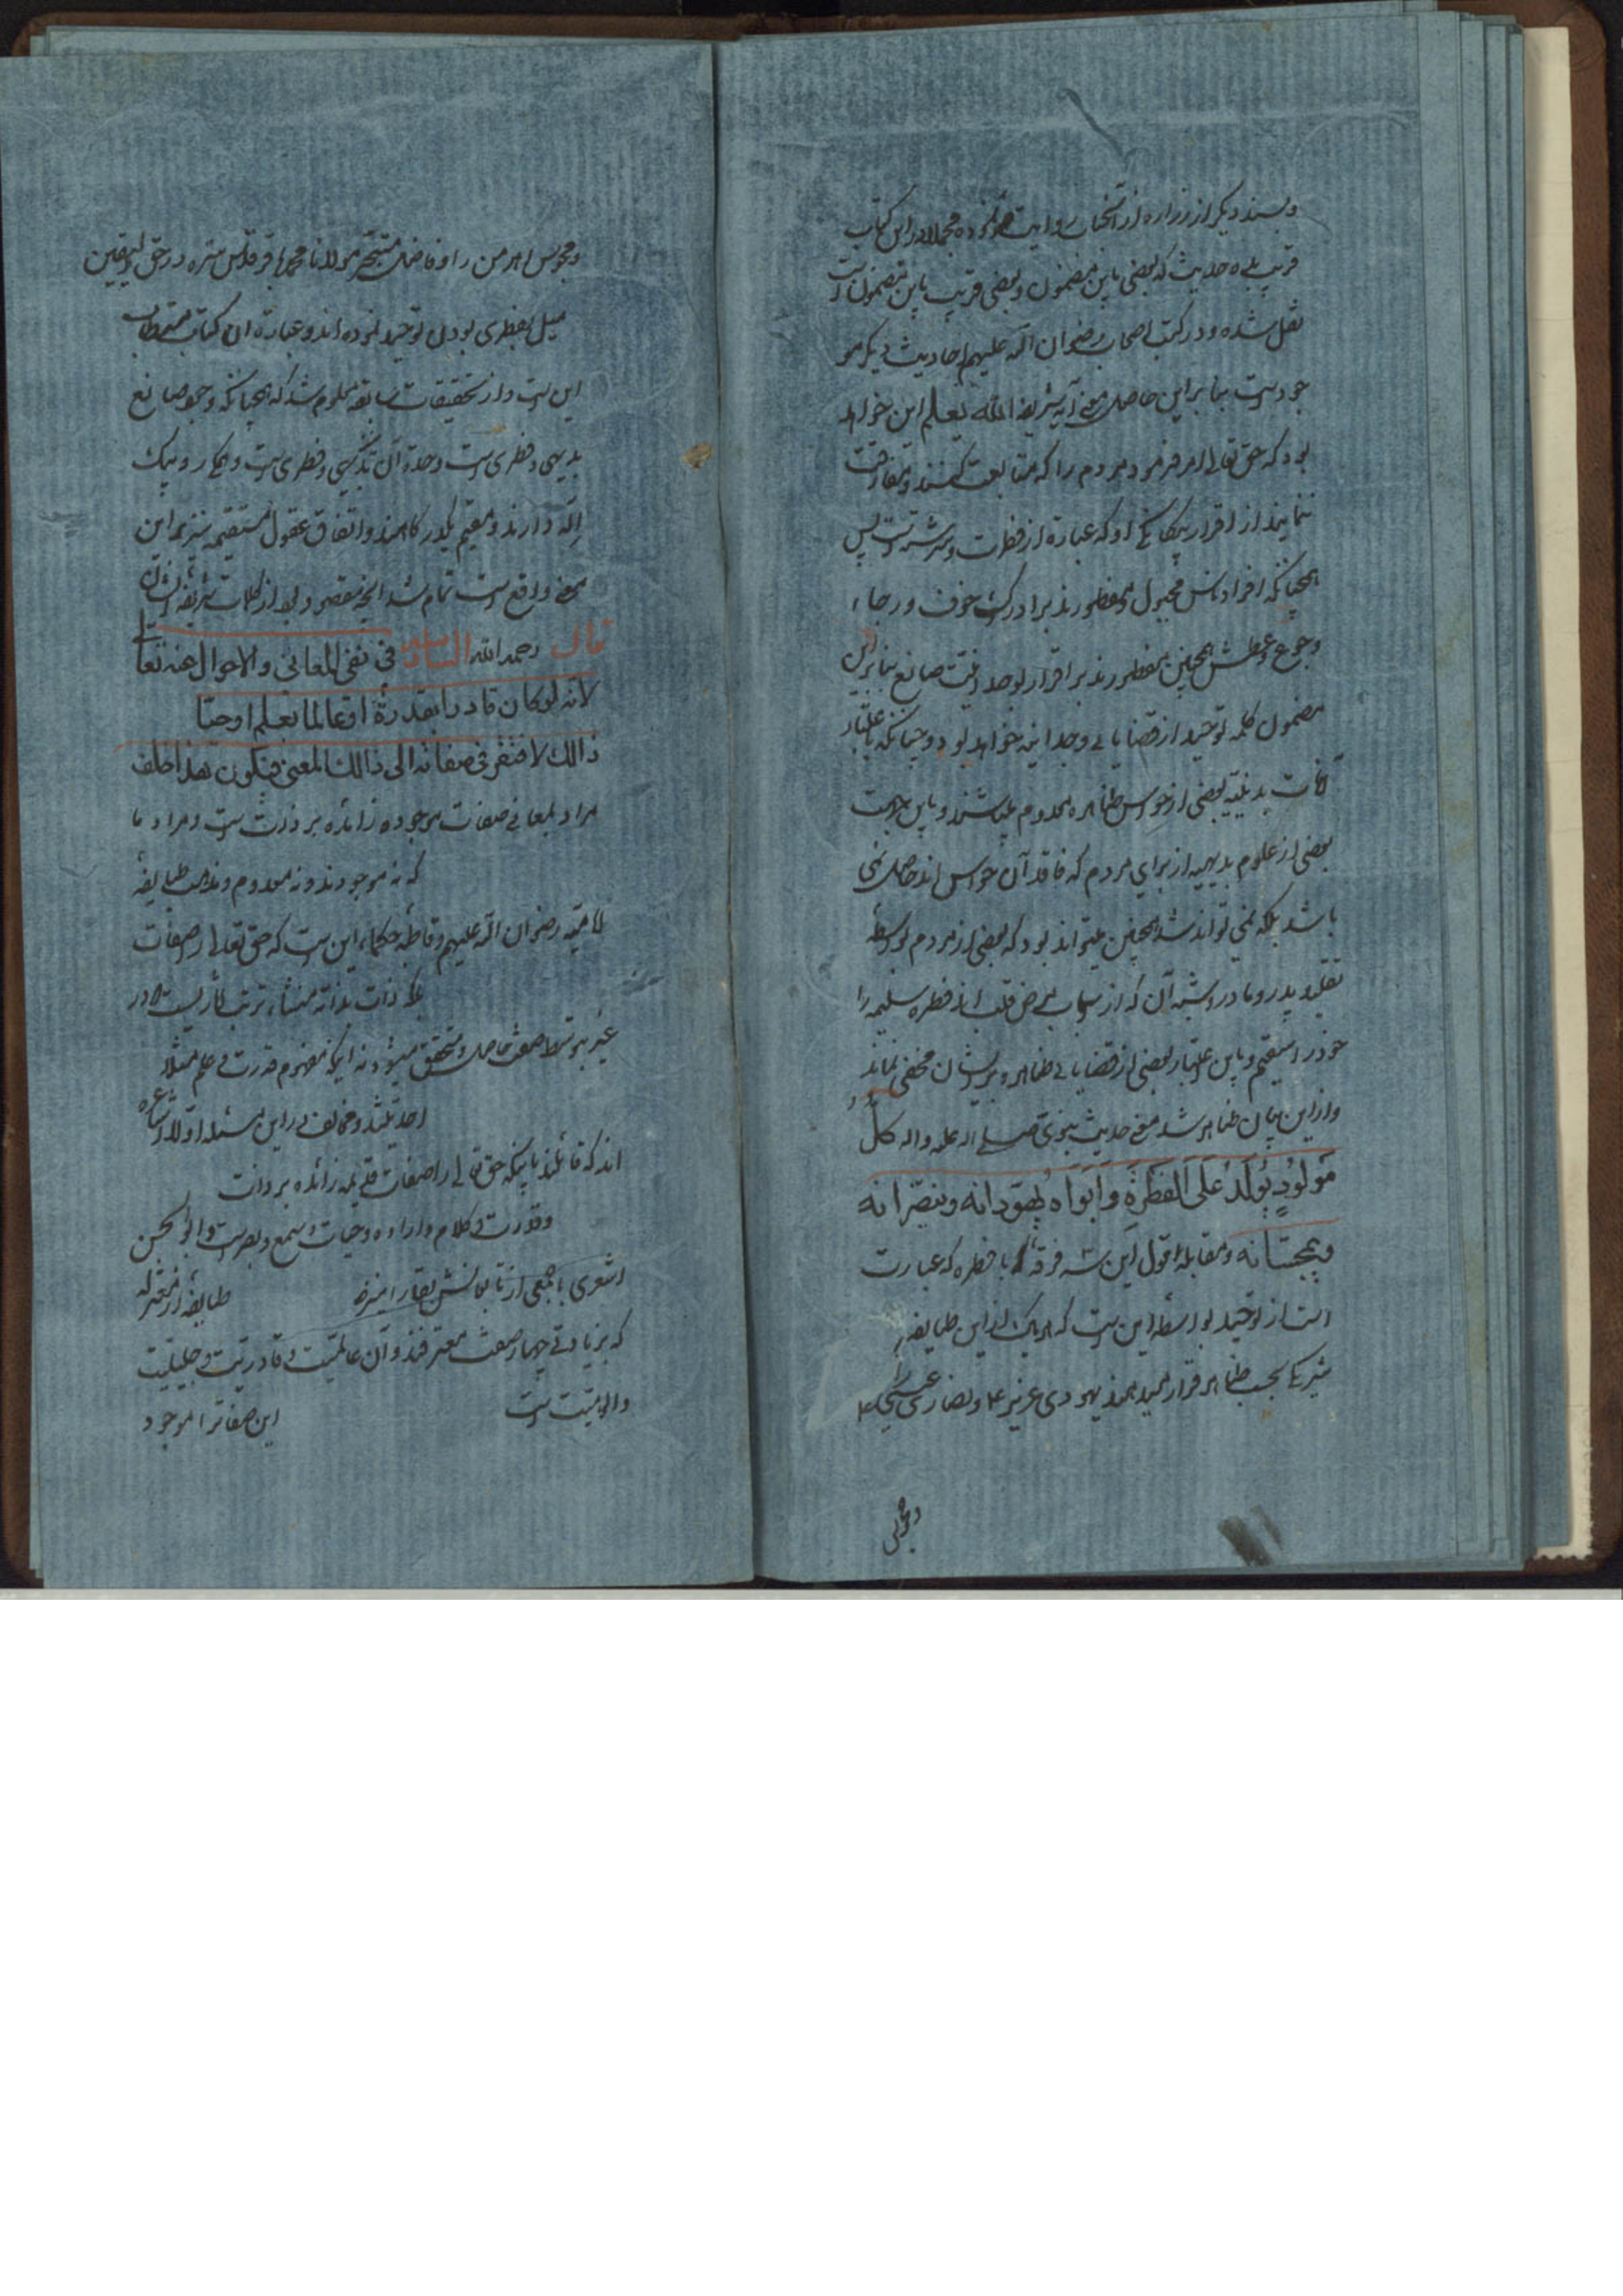 وبسند دیکر از زراره از آنجناب روایت نموده مجملا در این کتاب
قریب بده حدیث که بعضی باین مضمون و بعضی قریب باین مضمون است
نقل شده و در کتب اصحاب رضوان الله علیهم احادیث دیکر مو
جودست بنابراین حاصل معنی آیه شریفه الله یعلم این خواهد
بود که حق تعالی امر فرمود مردم را که متابعت کنند و مفارقت
ننمایند از اقرار بیکانکی او که عبارة از فطرت و سرشتست پس
همچنانکه افراد ناس مجبول و مفطورند بر ادراک خوف و رجاء
وجوع وعطش همچنین مفطورند بر اقرار بوحدانیت صانع بنابراین
مضمون کلمه توحید از قضایای وجدانیه خواهد بود و چنانکه باعتبار
آفات بدنیه بعضی از حواس ظاهره معدوم میباشند و باین جهت
بعضی از علوم بدیهیه از برای مردم که فاقد آن حواس اند حاصل نمی
باشد بلکه نمی تواند شد همچنین میتواند بود که بعضی از مردم بواسطه
تقلید پدر و مادر و شبه آن که از اسباب مرض قلب اند فطره سلیمه را
خود را سقیم و باین اعتبار بعضی از قضایای ظاهره بر ایشان مخفی نماند
و از این بیان ظاهر شد معنی حدیث نبوی صلی الله علیه واله کل
مولود یولد علی الفطرة وابواه یهودانه وینصرانه
ویمجسانه ومقابله اقول این سه فرقه با فطره که عبارت
است از توحید بواسطه این است که هر یک از این طایفه
شریک بحسب ظاهر قرار میدهند یهودی عزیر ع ونصاری عیسی ع
ومجوس
ومجوس اهرمن را و فاضل متبحر مولانا محمد باقر قدس سره در حق الیقین
میل بفطری بودن توحید نموده اند و عبارة ان کتاب مستطاب
این است و از تحقیقات سابقه معلوم شد که همچنانکه وجود صانع
بدیهی و فطری است وحدة آن نیز بدیهی و فطری ست
و اتفاق عقول مستقیمه نیز بر این
معنی واقع است تمام شد آنچه مقصود بود از کلمات شریفه ایشان
قال رحمه الله السادس فی نفی المعانی والاحوال عنه تعالی
لانه لوکان قادرا بقدرة اوعالما بعلم اوحیا
ذالک لافتقر فی صفاته الی ذالک المعنی فیکون هذا خلف
مراد بمعانی صفات موجوده زائده بر ذات ست و مراد با
که نه موجودند و نه معدوم ومذهب طایفه
امامیه رضوان الله علیهم و قاطبه حکماء این ست که حق تعالی را صفات
بلکه ذات بذاته منشاء ترتب آثاریست که در
غیر بتوسط صفت حاصل و متحقق میشود نه اینکه مفهوم قدرت و علم مثلا
احد باشد و مخالف در این مسئله اولا اشاعره
اند که قائلند باینکه حق تعالی را صفات قدیمه زائده بر ذات
وقدرت و کلام واراده وحیات وسمع وبصرست وابو الحسن
اشعری با جمعی از تابعانش بقا را نیز طایفه از معتزله
که بزیادتی چهار صفت معترفند و آن عالمیت و قادریت و حیّیت
والهیت است این صفات را موجود